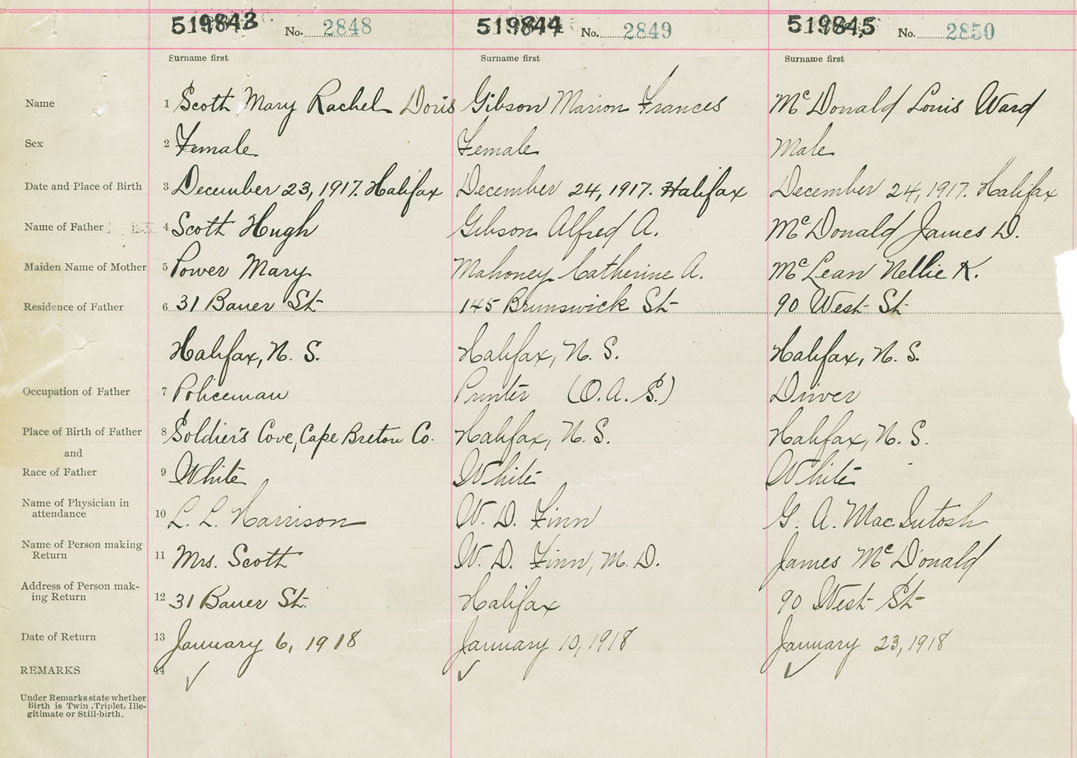 519843 No. 2848 519844 No. 2849 519845 No. 2850
Surname first Surname first Surname first
Name 1 Scott Mary Rachel Doris Gibson Marion Frances McDonald Louis Ward
Sex 2 Female Female Male
Date and Place of Birth 3 December 23, 1917. Halifax December 24, 1917. Halifax December 24, 1917. Halifax
Name of Father 4 Scott Hugh Gibson Alfred A. McDonald James D.
Maiden Name of Mother 5 Power Mary Mahoney Catherine A. McLean Nellie K.
Residence of Father 6 31 Bauer St 145 Brunswick St 90 West St
Halifax, N. S. Halifax, N. S. Halifax, N. S.
Occupation of Father 7 Policeman Printer (O. A. S.) Driver
Place of Birth of Father 8 Soldier's Cove, Cape Breton Co. Halifax, N. S. Halifax, N. S.
and
Race of Father 9 White White White
Name of Physician in
attendance 10 L. L. Harrison W. D. Finn G. A. MacIntosh
Name of Person making
Return 11 Mrs. Scott W. D. Finn, M. D. James McDonald
Address of Person mak-
ing Return 12 31 Bauer St. Halifax 90 West St
Date of Return 13 January 6, 1918 January 10, 1918 January 23, 1918
REMARKS 14
Under Remarks state whether
Birth is Twin, Triplet, Ille-
gitimate or Still-birth.